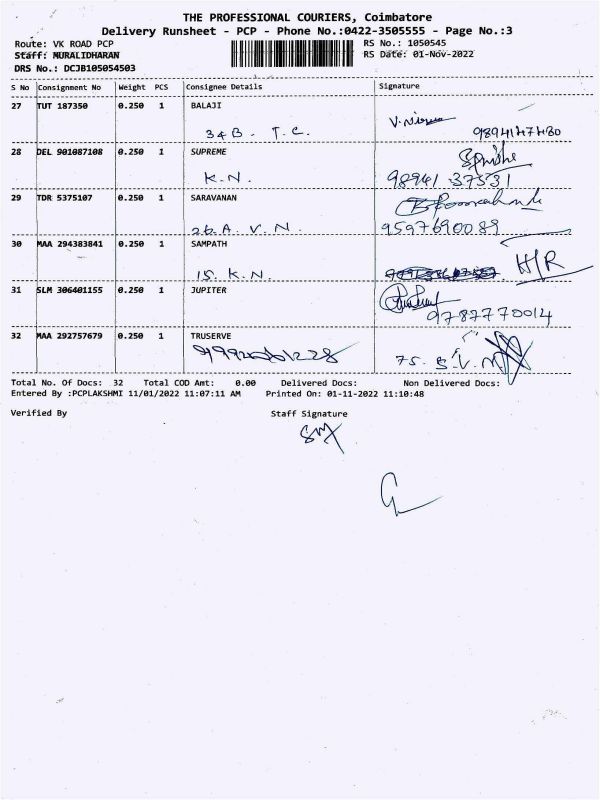 THE PROFESSIONAL COURIERS, Coimbatore
Delivery Runsheet - PCP - Phone No.:0422-3505555 - Page No.:3
Route: VK ROAD PCP RS No.: 1050545
Staff: MURALIDHARAN RS Date: 01-Nov-2022
DRS No.: DCJB105054503
S No Consignment No Weight PCS Consignee Details Signature
27 TUT 187350 0.250 1 BALAJI
34B. T.C. 9894147480
28 DEL 901087108 0.250 1 SUPREME
K.N. 98941 37531
29 TDR 5375107 0.250 1 SARAVANAN
26.A. V.N. 9597690089
30 MAA 294383841 0.250 1 SAMPATH H/R
15. K.N.
31 SLM 306401155 0.250 1 JUPITER
9787770014
32 MAA 292757679 0.250 1 TRUSERVE
75. S.V.
Total No. Of Docs: 32 Total COD Amt: 0.00 Delivered Docs: Non Delivered Docs:
Entered By :PCPLAKSHMI 11/01/2022 11:07:11 AM Printed On: 01-11-2022 11:10:48
Verified By Staff Signature